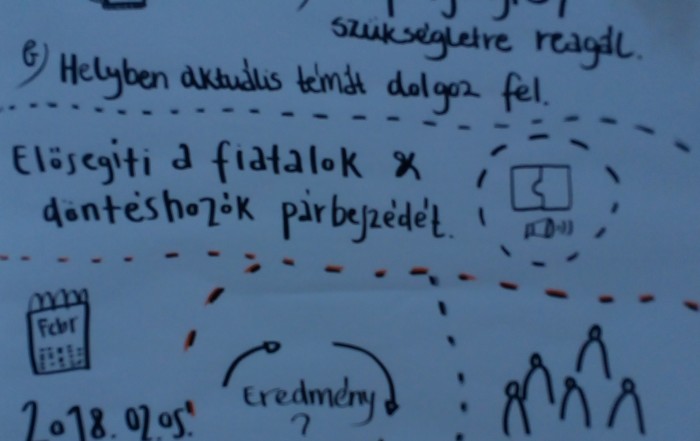 szükségletre reagál.
G) Helyben aktuális témát dolgoz fel.
Elősegiti a fiatalok &
döntéshozók párbeszédét.
Febr
Eredmény
?
2018.02.05!